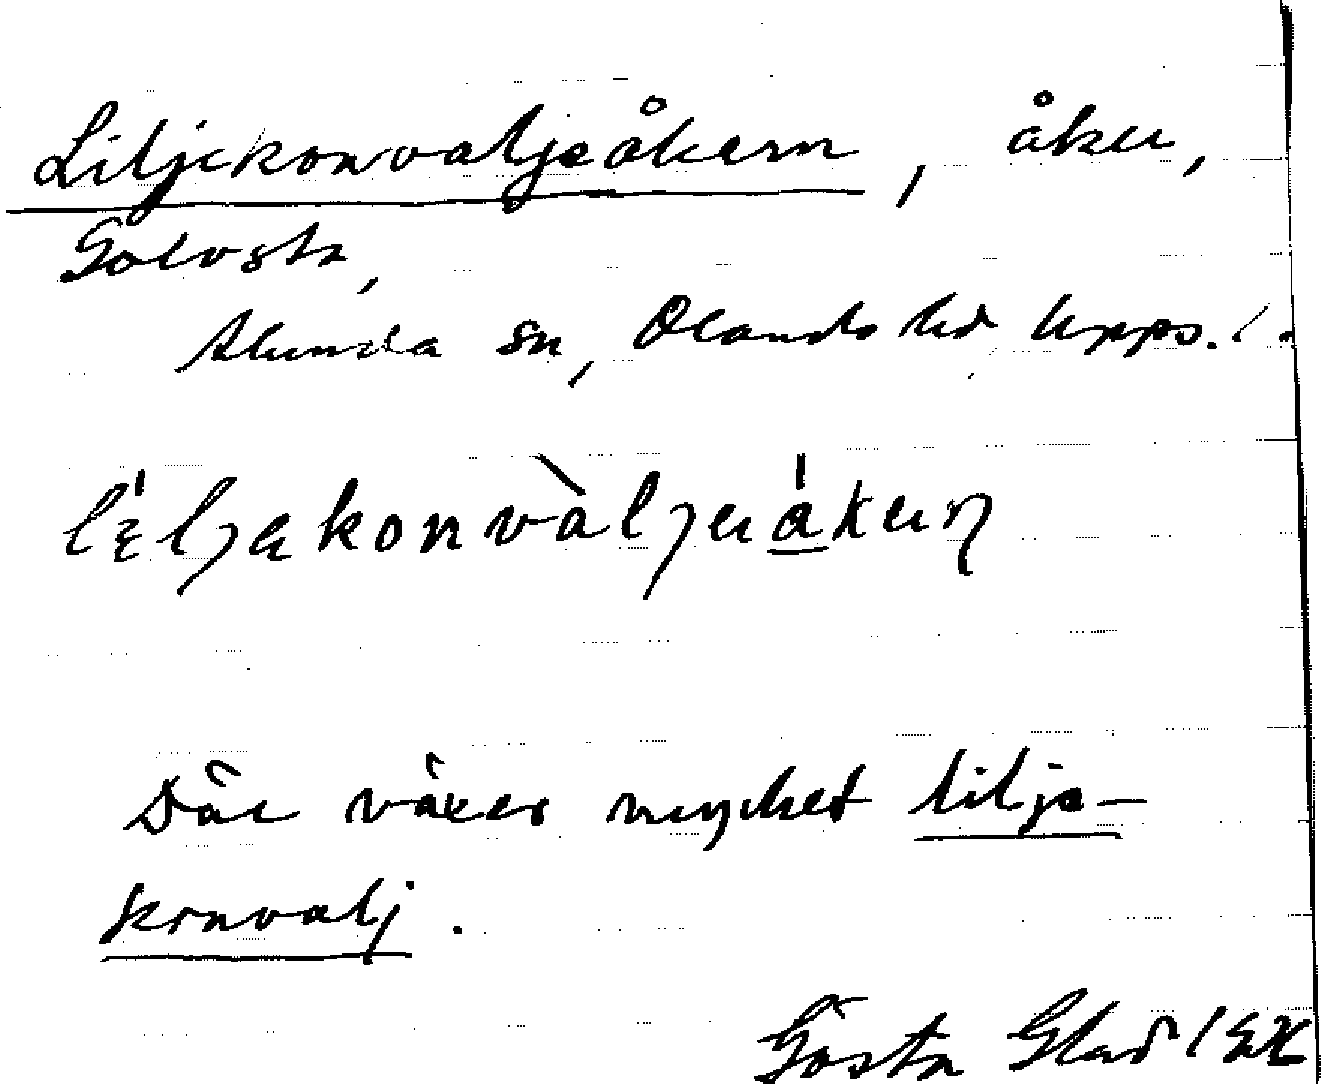 Liljekonvaljeåkern, åker,
Golvsta,
Alunda sn, Olands hd Upps. l.
Där växer mycket lilje-
konvalj.
Gösta Glad / EK